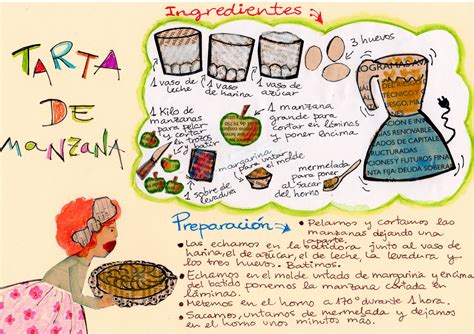 TARTA
DE
MANZANA
Ingredientes
3 huevos
1 vaso de
leche
1 vaso
de harina
1 vaso de
azúcar
1 Kilo de
manzanas
para pelar
y cortar
en trozos
1 manzana
grande para
cortar en láminas
y poner encima
margarina
para untar
el molde
mermelada
para poner
al sacar
del horno
1 sobre de
levadura
TÉCNICO Y
RENOVABLE
DOS DE CAPITAL
ESTRUCTURADOS
CIONES Y FUTUROS FINA
NTA FIJA: DEUDA SOBERA
Preparación
• Pelamos y cortamos las
manzanas dejando una
aparte.
• Las echamos en la batidora junto al vaso de
harina, el de azúcar, el de leche, la levadura y
los tres huevos. Batimos.
• Echamos en el molde untado de margarina y encima
del batido ponemos la manzana cortada en
láminas.
• Metemos en el horno a 170º durante 1 hora.
• Sacamos, untamos de mermelada y dejamos
en el horno unos minutos más.